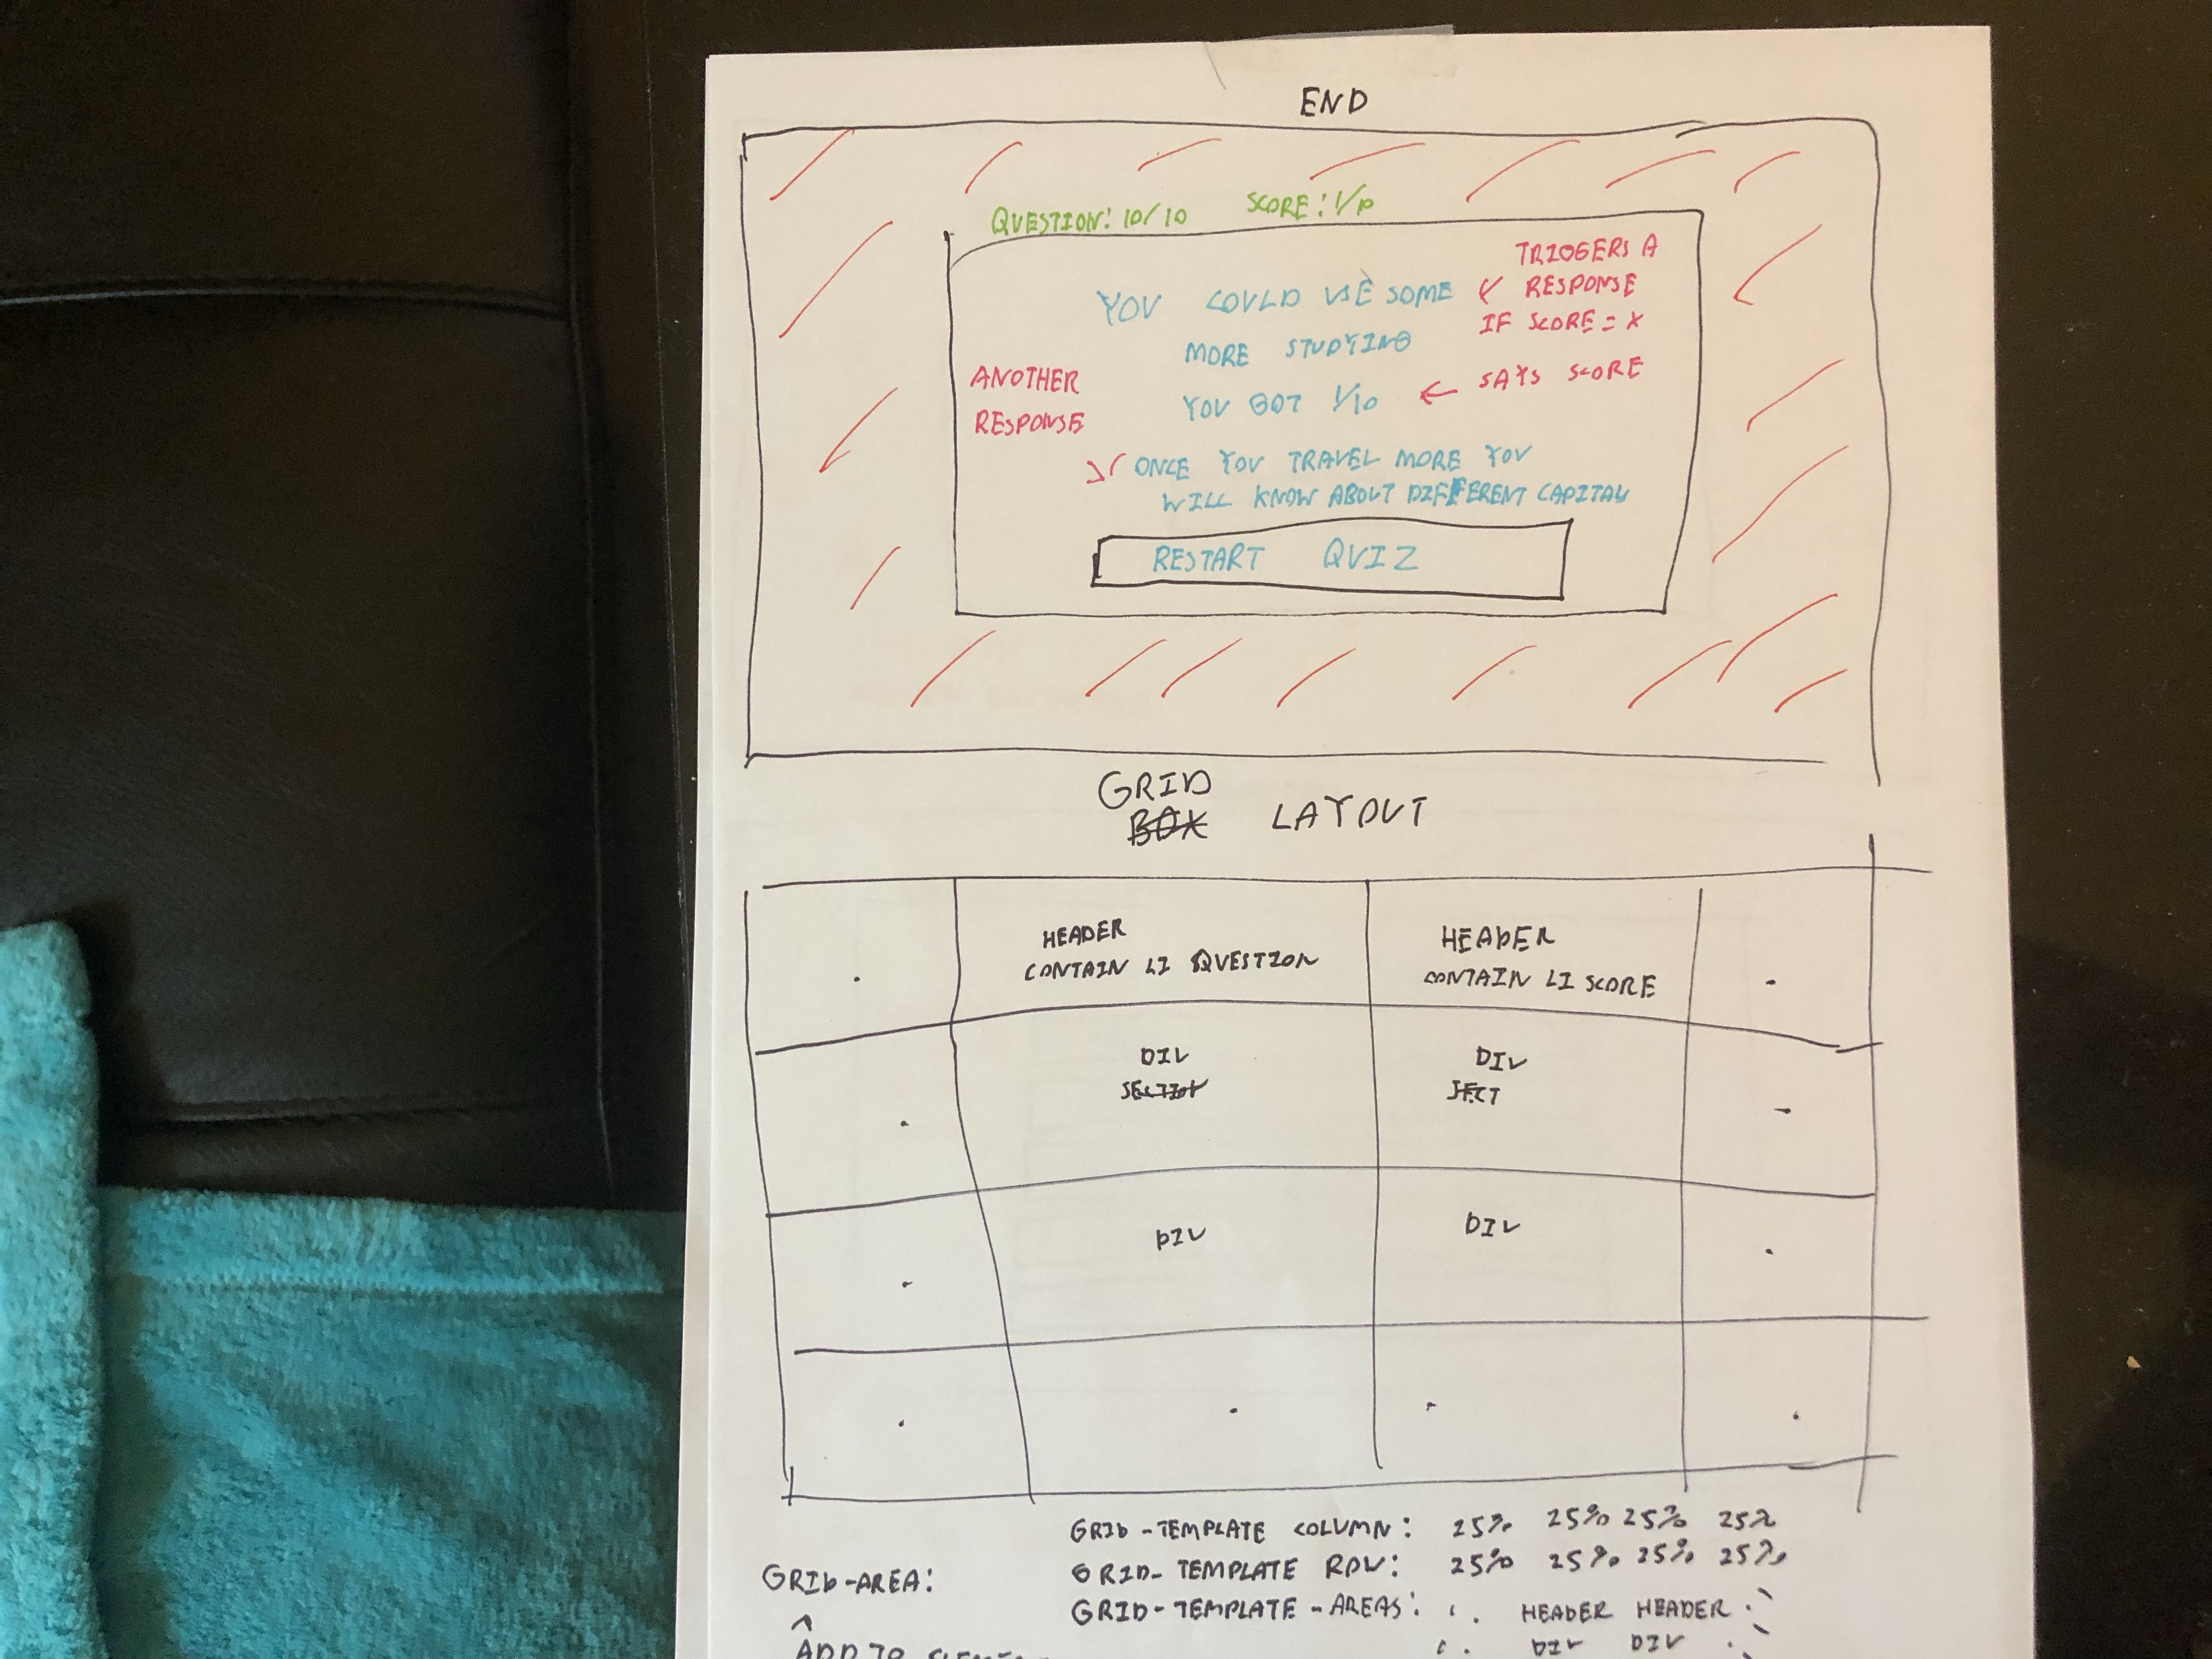 END
QUESTION: 10/10 SCORE: 1/10
YOU COULD USE SOME
MORE STUDYING
YOU GOT 1/10
TRIGGERS A
RESPONSE
IF SCORE = X
← SAYS SCORE
ANOTHER
RESPONSE
ONCE YOU TRAVEL MORE YOU
WILL KNOW ABOUT DIFFERENT CAPITALS
RESTART QUIZ
GRID
BOX LAYOUT
HEADER
CONTAIN LI QUESTION
HEADER
CONTAIN LI SCORE
DIV
SECTION
DIV
SECT
DIV
DIV
GRID-TEMPLATE COLUMN: 25% 25% 25% 25%
GRID-TEMPLATE ROW: 25% 25% 25% 25%
GRID-AREA:
GRID-TEMPLATE-AREAS: ' . HEADER HEADER . '
^
ADD TO
' . DIV DIV . '